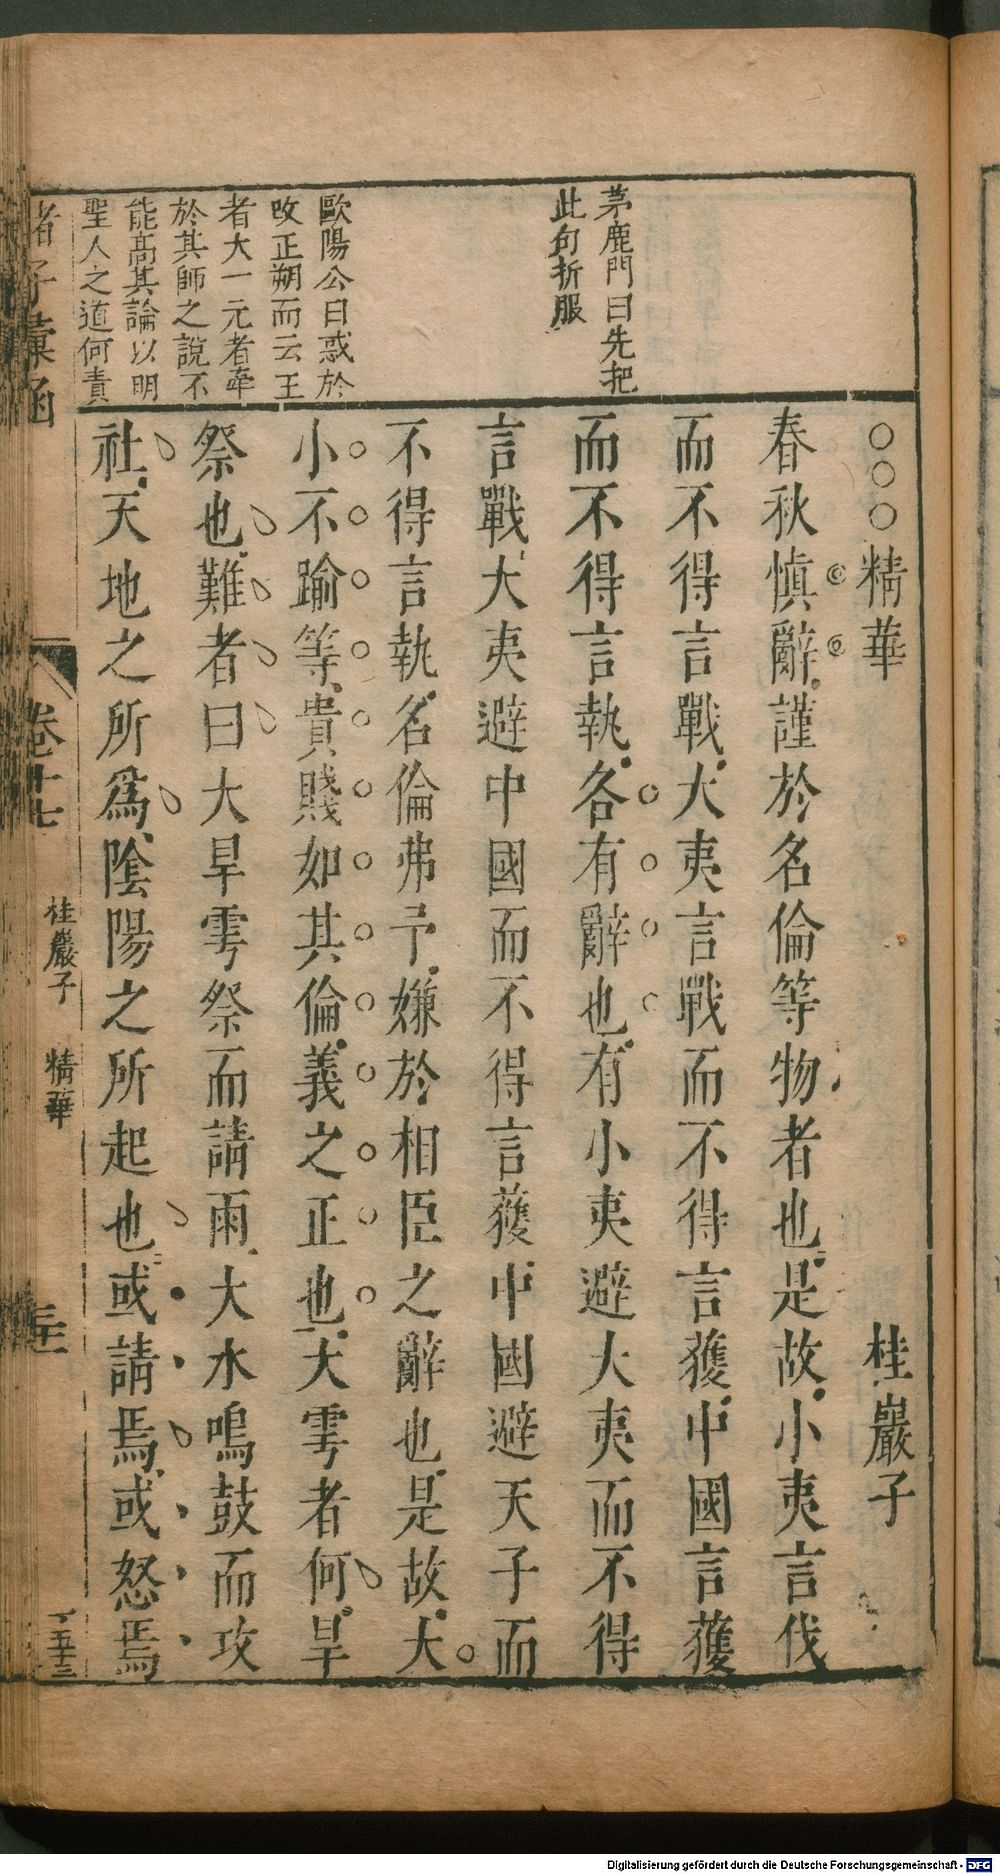 茅鹿門曰先把
此句折服
歐陽公曰惑於
改正朔而云王
者大一元者牽
於其師之說不
能高其論以明
聖人之道何責
○○○精華 桂巖子
春秋慎辭謹於名倫等物者也是故小夷言伐
而不得言戰大夷言戰而不得言獲中國言獲
而不得言執各有辭也有小夷避大夷而不得
言戰大夷避中國而不得言獲中國避天子而
不得言執名倫弗予嫌於相臣之辭也是故大
小不踰等貴賤如其倫義之正也大雩者何旱
祭也難者曰大旱雩祭而請雨大水鳴鼓而攻
社天地之所爲陰陽之所起也或請焉或怒焉
諸子彙函 卷十七 桂巖子 精華 五十三
Digitalisierung gefördert durch die Deutsche Forschungsgemeinschaft - DFG